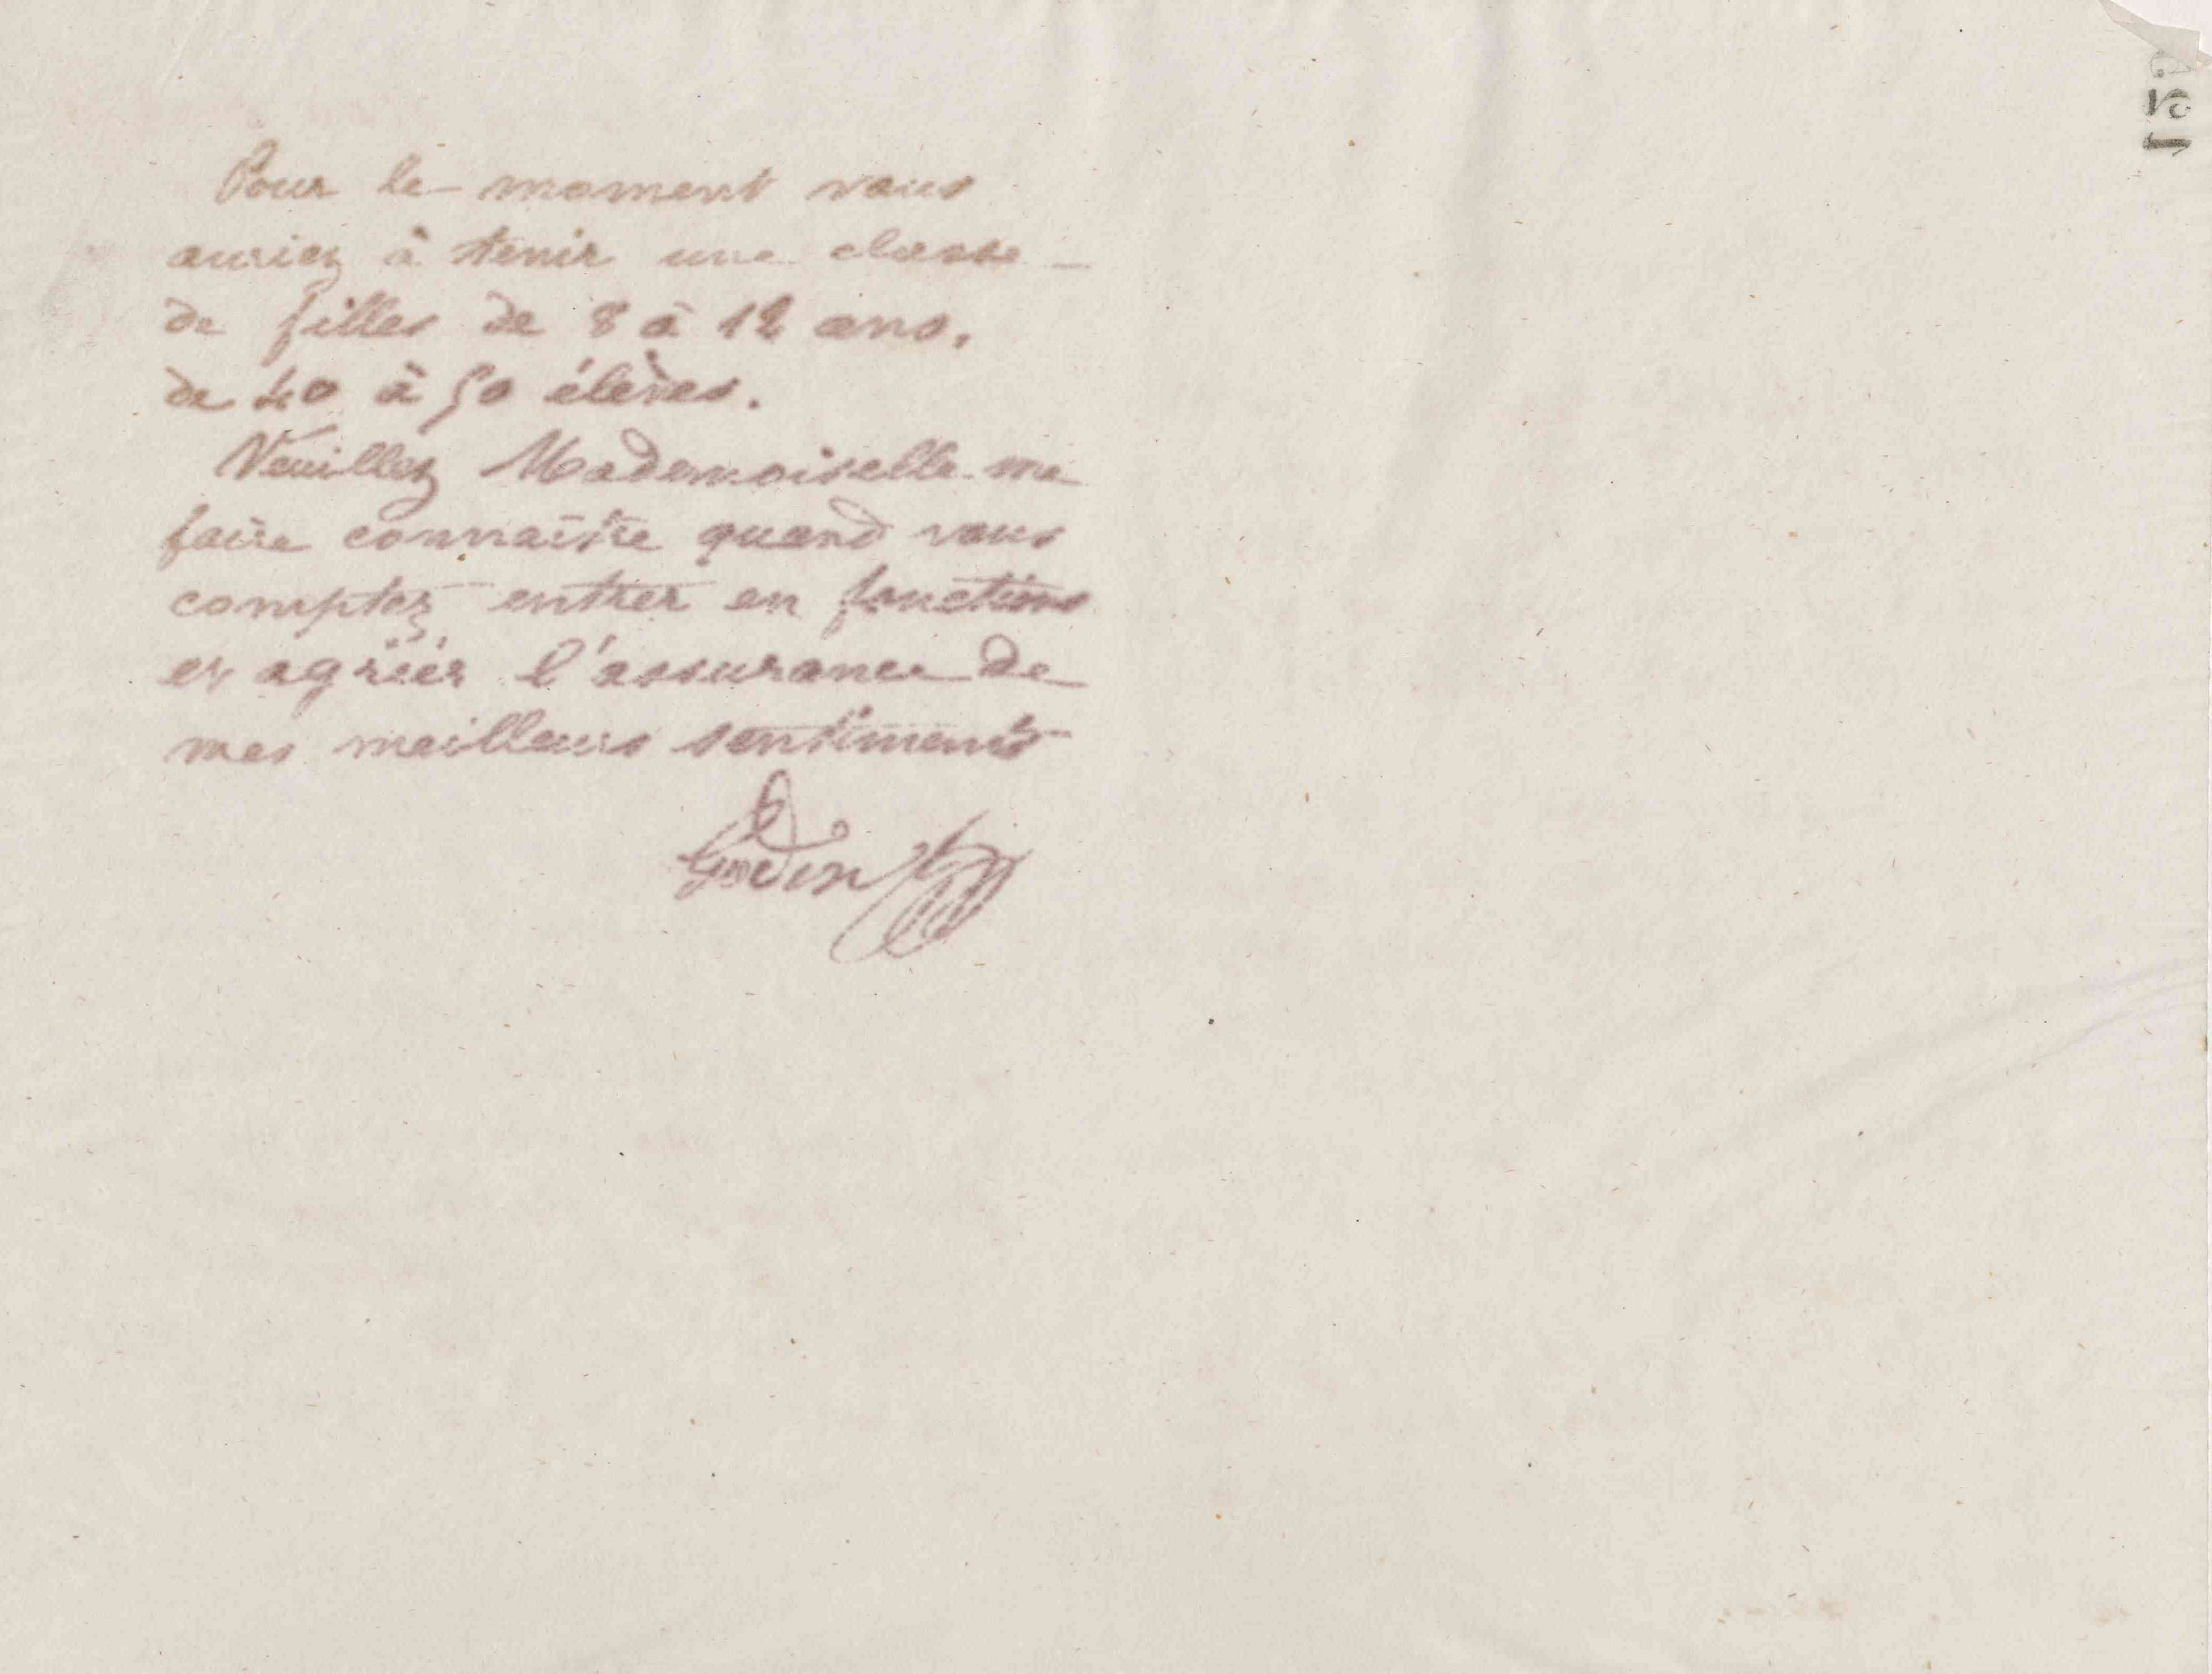 Pour le moment vous
auriez à tenir une classe
de filles de 8 à 12 ans.
de 40 à 50 élèves.
Veuillez Mademoiselle me
faire connaître quand vous
comptez entrer en fonctions
et agréér l'assurance de
mes meilleurs sentiments
Godin